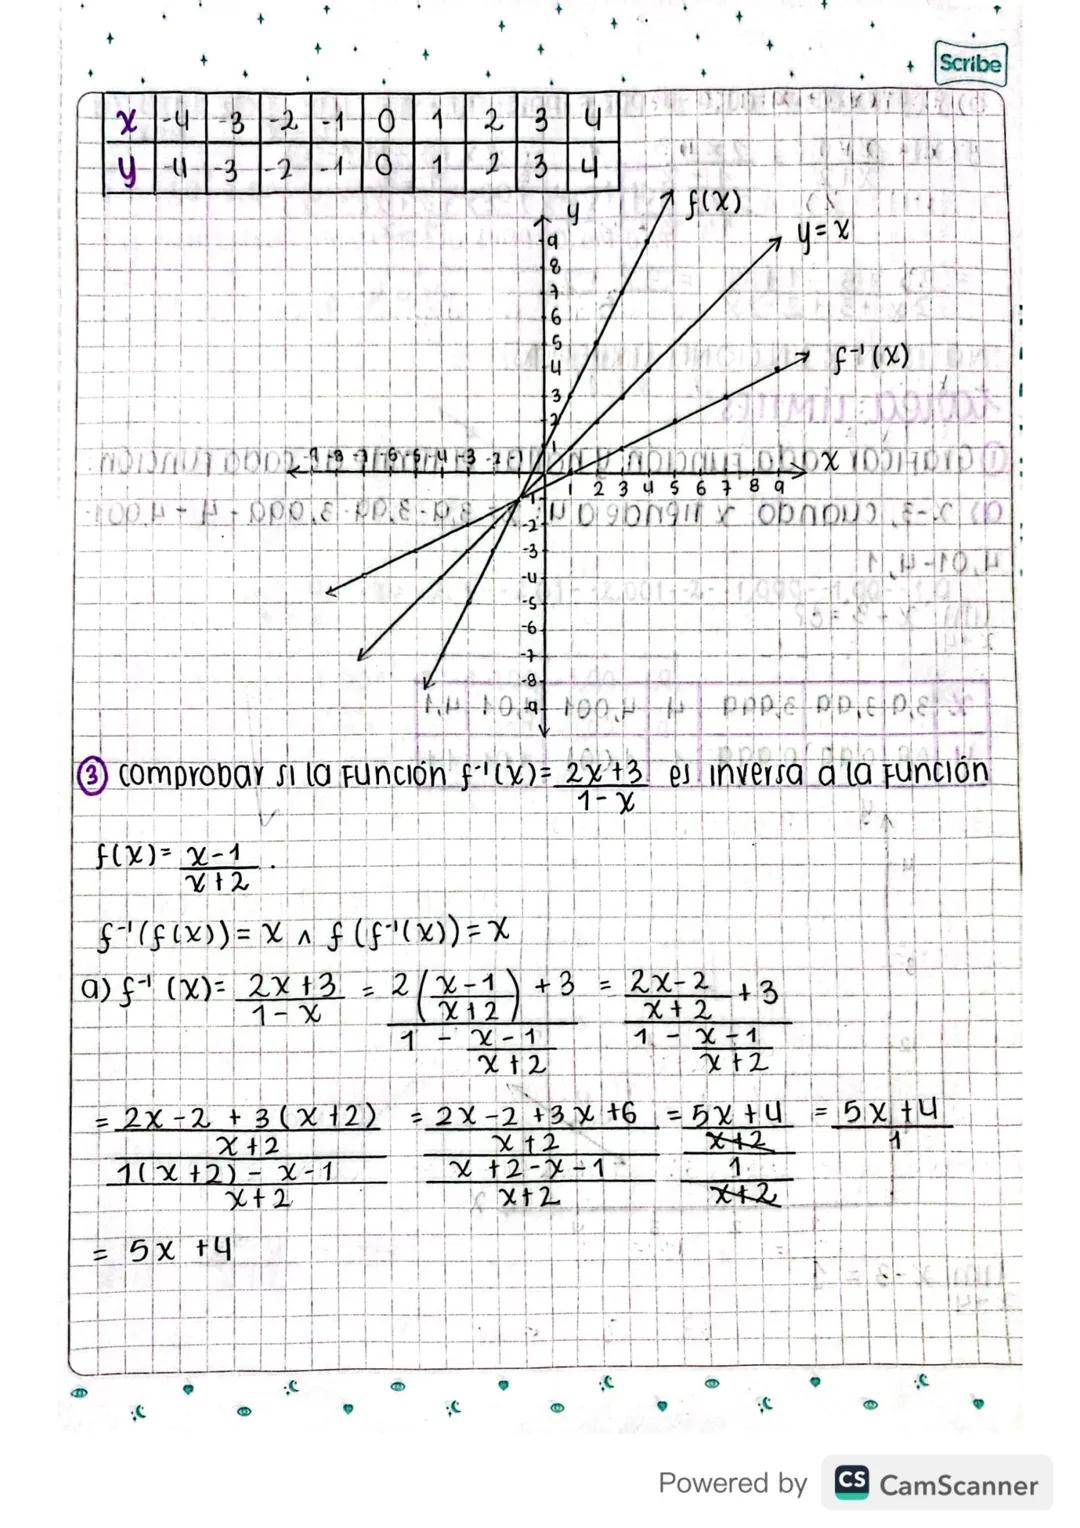 Scribe
x -4 -3 -2 -1 0 1 2 3 4
y -4 -3 -2 -1 0 1 2 3 4
y
f(x)
y=x
f⁻¹(x)
x
9
8
7
6
5
4
3
2
1
-9 -8 -7 -6 -5 -4 -3 -2 -1
1 2 3 4 5 6 7 8 9
-1
-2
-3
-4
-5
-6
-7
-8
-9
③ comprobar si la función f⁻¹(x)= (2x+3)/(1-x) es inversa a la función
f(x)= (x-1)/(x+2).
f⁻¹(f(x))= x ∧ f(f⁻¹(x))=x
a) f⁻¹ (x)= (2x+3)/(1-x) = (2((x-1)/(x+2))+3)/(1 - (x-1)/(x+2)) = ((2x-2)/(x+2) +3)/(1 - (x-1)/(x+2))
= ((2x-2 + 3(x+2))/(x+2))/((1(x+2) - x-1)/(x+2)) = ((2x-2+3x+6)/(x+2))/((x+2-x-1)/(x+2)) = ((5x+4)/(x+2))/(1/(x+2)) = (5x+4)/1
= 5x +4
Powered by CS CamScanner